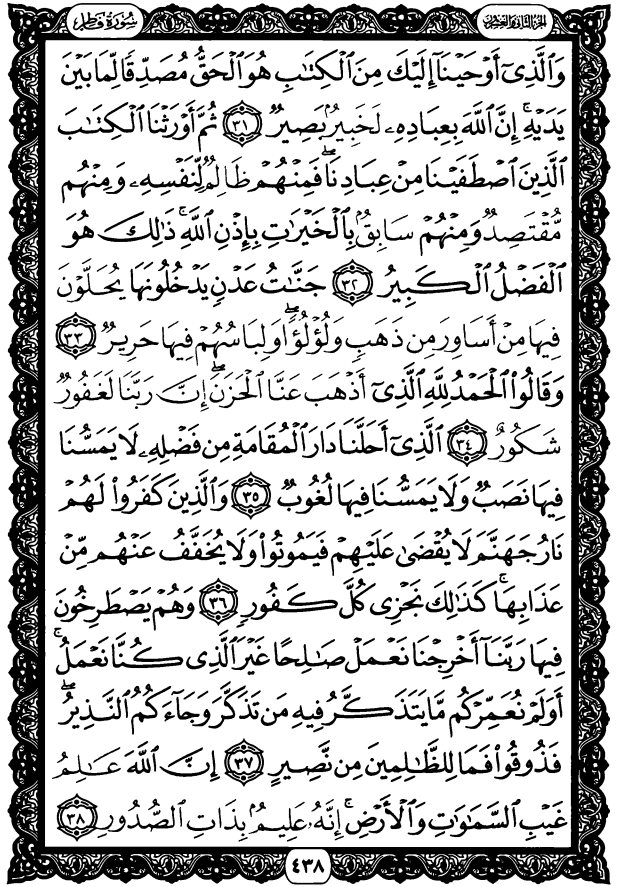 الجزء الثاني والعشرون
سُورَةُ فَاطِرٍ
وَٱلَّذِىٓ أَوْحَيْنَآ إِلَيْكَ مِنَ ٱلْكِتَٰبِ هُوَ ٱلْحَقُّ مُصَدِّقًا لِّمَا بَيْنَ
يَدَيْهِۗ إِنَّ ٱللَّهَ بِعِبَادِهِۦ لَخَبِيرُۢ بَصِيرٌ ٣١ ثُمَّ أَوْرَثْنَا ٱلْكِتَٰبَ
ٱلَّذِينَ ٱصْطَفَيْنَا مِنْ عِبَادِنَاۖ فَمِنْهُمْ ظَالِمٌ لِّنَفْسِهِۦ وَمِنْهُم
مُّقْتَصِدٌ وَمِنْهُمْ سَابِقُۢ بِٱلْخَيْرَٰتِ بِإِذْنِ ٱللَّهِۚ ذَٰلِكَ هُوَ
ٱلْفَضْلُ ٱلْكَبِيرُ ٣٢ جَنَّٰتُ عَدْنٍ يَدْخُلُونَهَا يُحَلَّوْنَ
فِيهَا مِنْ أَسَاوِرَ مِن ذَهَبٍ وَلُؤْلُؤًاۖ وَلِبَاسُهُمْ فِيهَا حَرِيرٌ ٣٣
وَقَالُوا۟ ٱلْحَمْدُ لِلَّهِ ٱلَّذِىٓ أَذْهَبَ عَنَّا ٱلْحَزَنَۖ إِنَّ رَبَّنَا لَغَفُورٌ
شَكُورٌ ٣٤ ٱلَّذِىٓ أَحَلَّنَا دَارَ ٱلْمُقَامَةِ مِن فَضْلِهِۦ لَا يَمَسُّنَا
فِيهَا نَصَبٌ وَلَا يَمَسُّنَا فِيهَا لُغُوبٌ ٣٥ وَٱلَّذِينَ كَفَرُوا۟ لَهُمْ
نَارُ جَهَنَّمَ لَا يُقْضَىٰ عَلَيْهِمْ فَيَمُوتُوا۟ وَلَا يُخَفَّفُ عَنْهُم مِّنْ
عَذَابِهَاۚ كَذَٰلِكَ نَجْزِى كُلَّ كَفُورٍ ٣٦ وَهُمْ يَصْطَرِخُونَ
فِيهَا رَبَّنَآ أَخْرِجْنَا نَعْمَلْ صَٰلِحًا غَيْرَ ٱلَّذِى كُنَّا نَعْمَلُۚ
أَوَلَمْ نُعَمِّرْكُم مَّا يَتَذَكَّرُ فِيهِ مَن تَذَكَّرَ وَجَآءَكُمُ ٱلنَّذِيرُۖ
فَذُوقُوا۟ فَمَا لِلظَّٰلِمِينَ مِن نَّصِيرٍ ٣٧ إِنَّ ٱللَّهَ عَٰلِمُ
غَيْبِ ٱلسَّمَٰوَٰتِ وَٱلْأَرْضِۚ إِنَّهُۥ عَلِيمُۢ بِذَاتِ ٱلصُّدُورِ ٣٨
٤٣٨